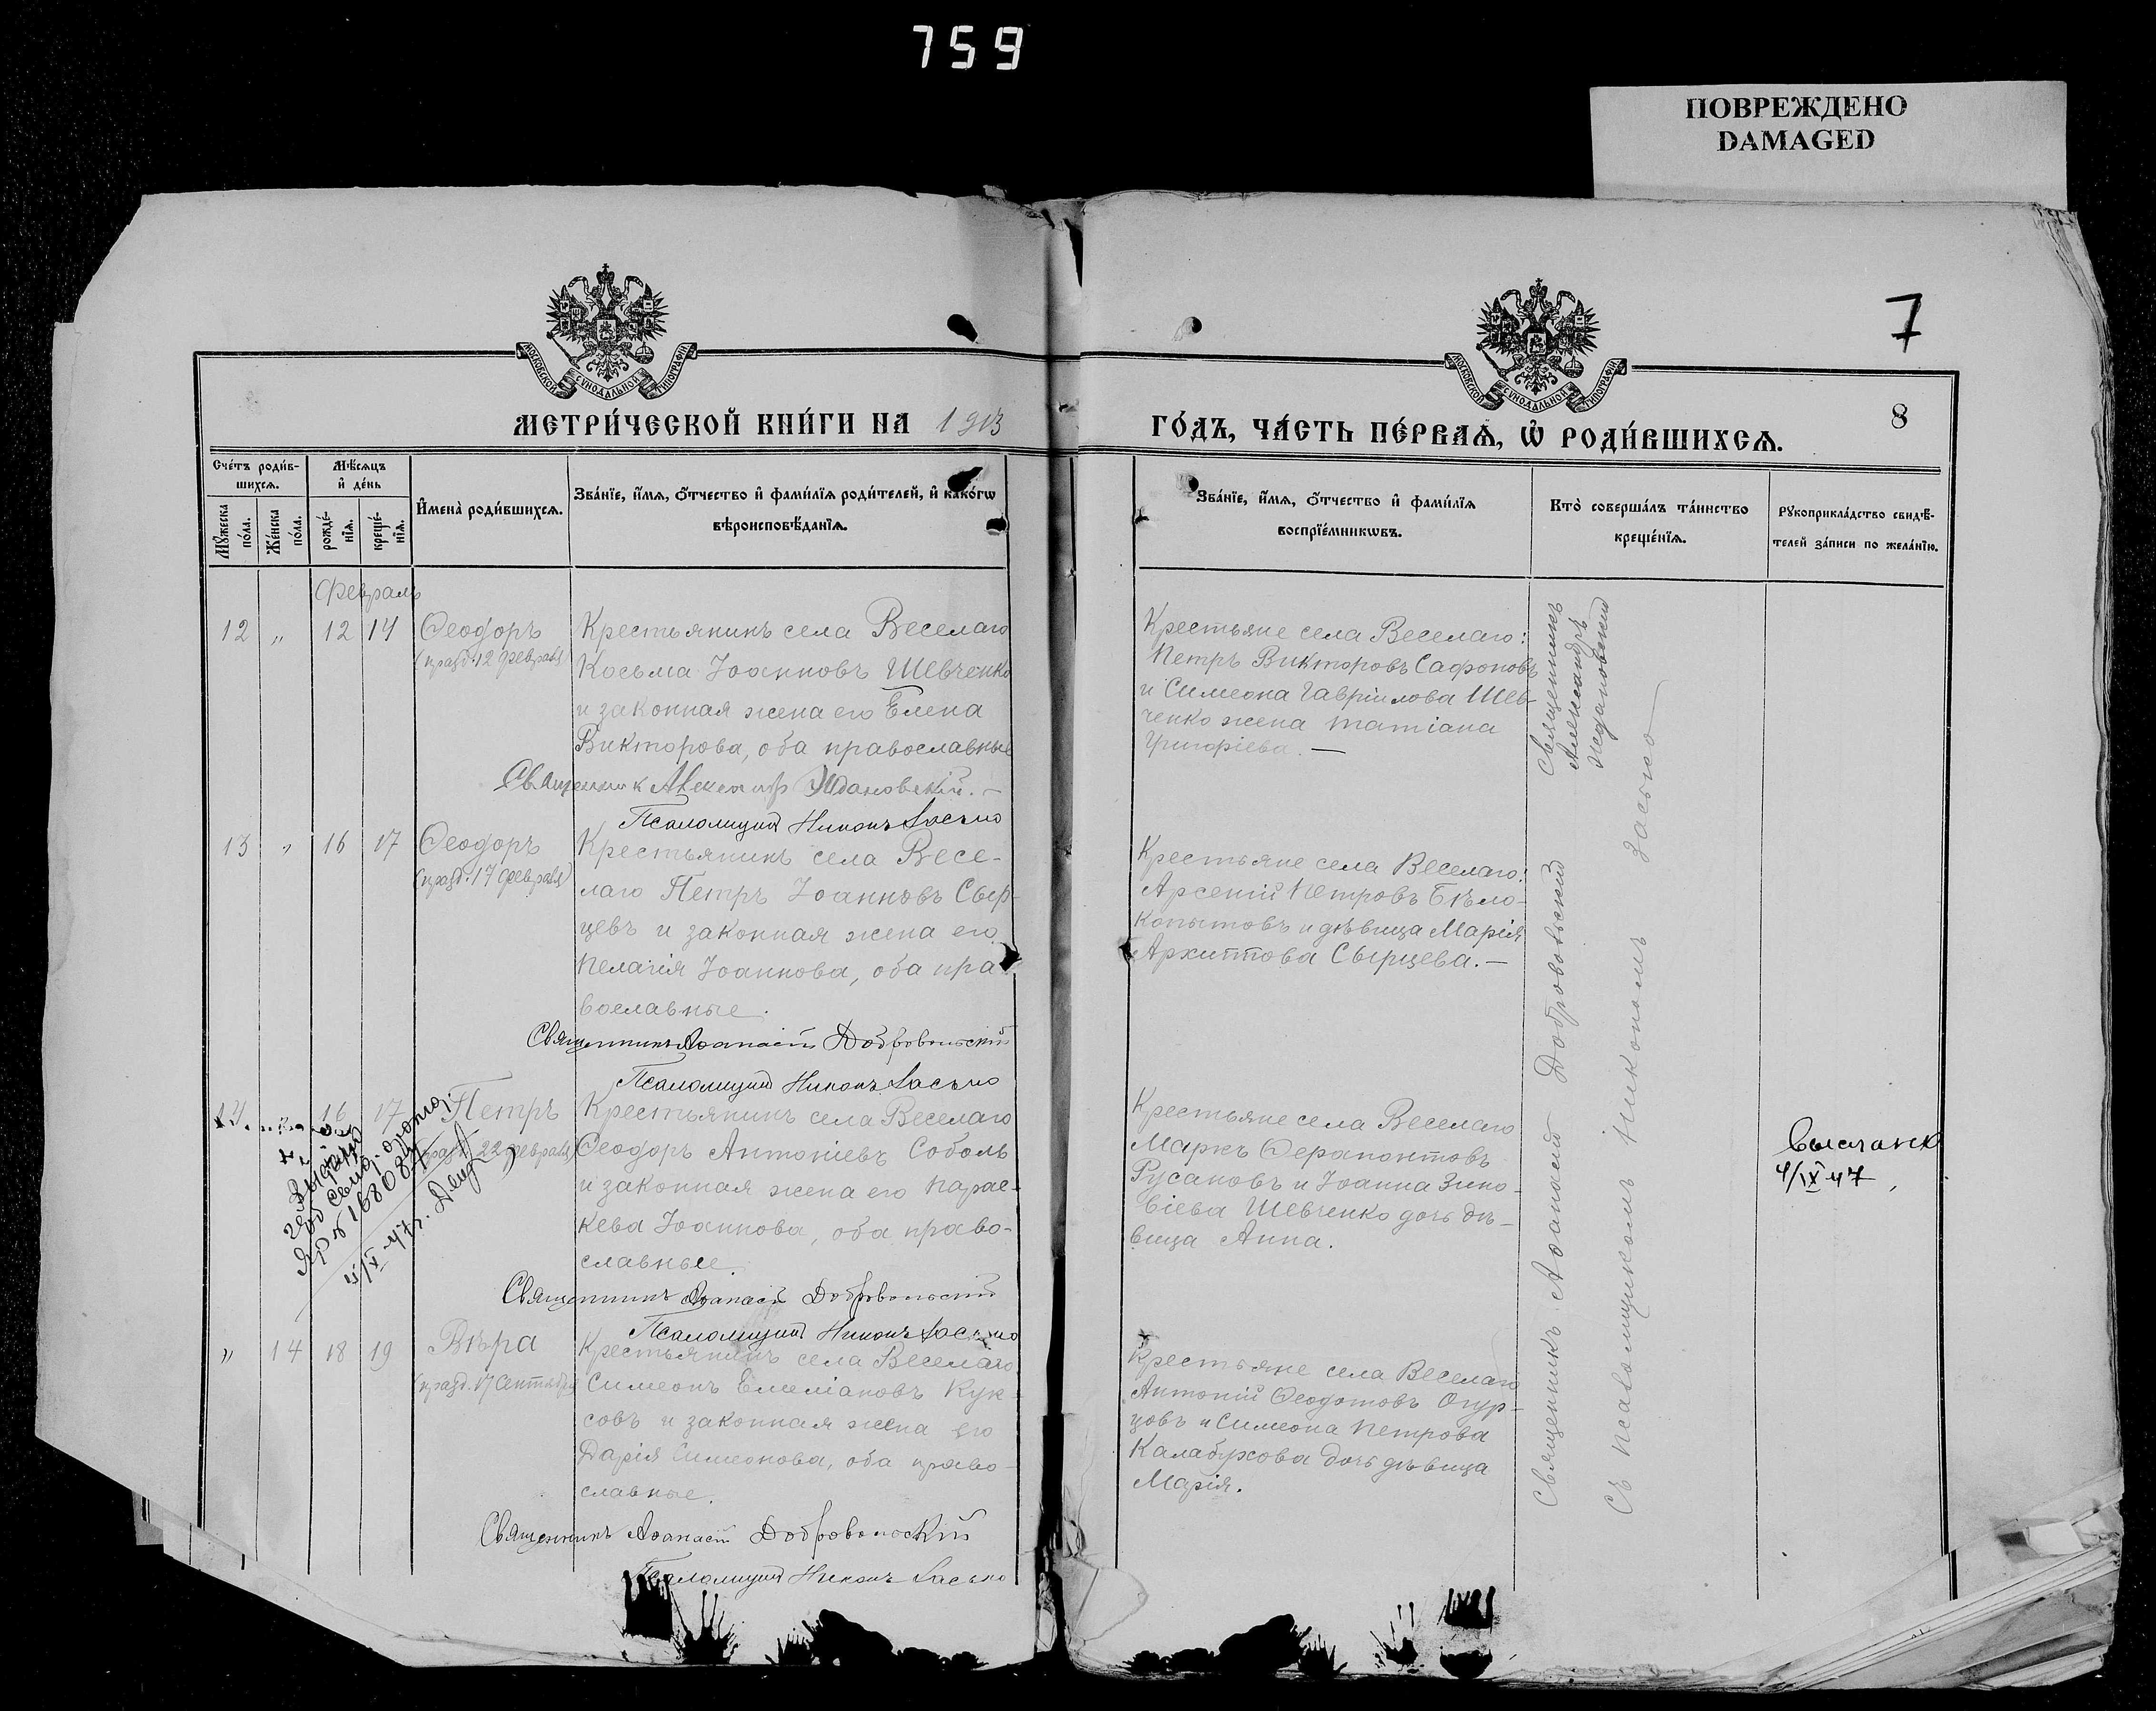 759
ПОВРЕЖДЕНО
DAMAGED
7
МОСКОВСКОЙ СѴНОДАЛЬНОЙ ТИПОГРАФІИ
МОСКОВСКОЙ СѴНОДАЛЬНОЙ ТИПОГРАФІИ
МЕТРИ́ЧЕСКОЙ КНИ́ГИ НА 1913
ГО́ДЪ, ЧА́СТЬ ПЕ́РВАѦ, Ѽ РОДИ́ВШИХСѦ.
8
Сче́тъ роди́в-
шихсѧ.
Мѣ́сѧцъ
и҆ де́нь
Мꙋ́жеска
по́ла.
Же́нска
по́ла.
рожде́-
нїѧ.
креще́-
нїѧ.
И҆мена̀ роди́вшихсѧ.
Зва́нїе, и҆́мѧ, ѻ҆́тчество и҆ фами́лїѧ роди́телей, и҆ како́гѡ
вѣроисповѣ́данїѧ.
Зва́нїе, и҆́мѧ, ѻ҆́тчество и҆ фами́лїѧ
воспрїе́мникѡвъ.
Кто̀ соверша́лъ та́инство
креще́нїѧ.
Рꙋкоприкла́дство свидѣ́-
телей за́писи по жела́нїю.
Февраль
12 „ 12 14 Ѳеодоръ
(празд. 12 февраля
Крестьянинъ села Веселаго
Косьма Іоанновъ Шевченко
и законная жена его Елена
Викторова, оба православные
Священник Александр Ждановскій. —
Псаломщикъ Никонъ Засько
Крестьяне села Веселаго:
Петръ Викторовъ Сафоновъ
и Симеона Гавріилова Шев-
ченко жена Татіана
Григоріева. —
Священникъ
Александръ
Ждановскій
13 „ 16 17 Ѳеодоръ
(празд. 17 февраля)
Крестьянинъ села Весе-
лаго Петръ Іоанновъ Сыр-
цевъ и законная жена его
Пелагія Іоаннова, оба пра-
вославные.
Священникъ Аѳанасій Добровольскій
Псаломщикъ Никонъ Засько
Крестьяне села Веселаго:
Арсеній Петровъ Бѣло-
копытовъ и дѣвица Марія
Архиппова Сырцева. —
14 16 17 Петръ
празд. 22 февраля)
Крестьянинъ села Веселаго
Ѳеодоръ Антоніевъ Соболь
и законная жена его Парас-
кева Іоаннова, оба право-
славные.
Священникъ Аѳанасій Добровольскій
Псаломщикъ Никонъ Засько
Крестьяне села Веселаго
Маркъ Ѳерапонтовъ
Русановъ и Іоанна Зино-
віева Шевченко дочь дѣ-
вица Анна.
4/IX 47
„ 14 18 19 Вѣра
(празд. 17 Сентября
Крестьянинъ села Веселаго
Симеонъ Емеліановъ Кук-
совъ и законная жена его
Дарія Симеонова, оба право-
славные.
Священникъ Аѳанасій Добровольскій
Псаломщикъ Никонъ Засько
Крестьяне села Веселаго
Антоній Ѳеодотовъ Огур-
цовъ и Симеона Петрова
Калабухова дочь дѣвица
Марія.
Священникъ Аѳанасій Добровольскій
Съ псаломщикомъ Никономъ Засько